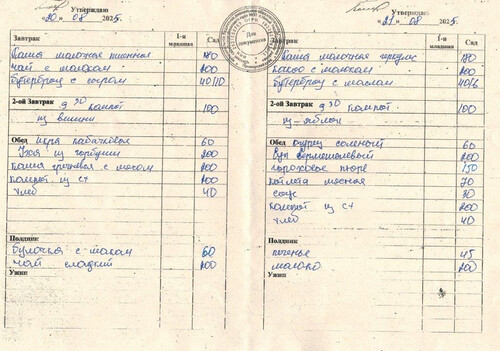 Утверждаю
«20» 08 2025
Завтрак
1-я младшая
Сад
Каша молочная пшенная 180
Чай с молоком 200
Бутерброд с сыром 40/10
2-ой Завтрак 9 30 компот 100
из вишни
Обед Икра кабачковая 60
200
Каша гречневая с мясом 200
Компот из с/ф 200
Хлеб 40
Полдник
Булочка с маком 60
Чай сладкий 200
Ужин
Для документов
Утверждаю
«21» 08 2025
Завтрак
1-я младшая
Сад
Каша молочная геркулес 180
Какао с молоком 200
Бутерброд с маслом 40/6
2-ой Завтрак 9 30 компот 100
из яблок
Обед Огурец соленый 60
Суп вермишелевый 200
Гороховое пюре 150
Котлета мясная 70
Соус 30
Компот из с/ф 200
Хлеб 40
Полдник
Печенье 45
Молоко 200
Ужин